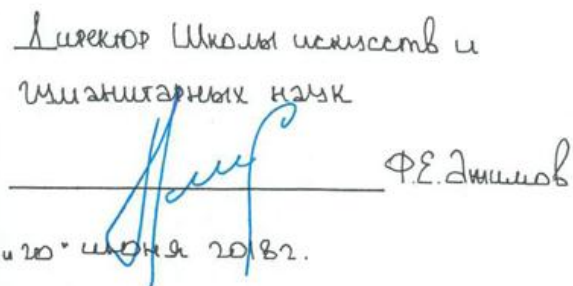 Директор Школы искусств и
гуманитарных наук
Ф.Е.Ажимов
"20" июня 2018г.